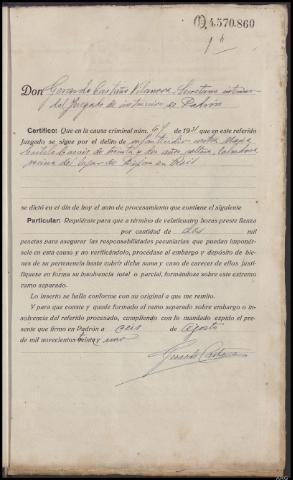 4.570.860
Don Gerardo Castaño Vilanova Secretario interino
del Juzgado de instrucción de Padrón
Certifico: Que en la causa criminal núm. 64 de 1931 en que este referido
Juzgado se sigue por el delito de infanticidio contra María
de treinta y dos años, soltera, labradora
vecina del lugar de en Dodro
se dictó en el día de hoy el auto de procesamiento que contiene el siguiente
Particular: Requiérate para que a término de veinticuatro horas preste fianza
por cantidad de dos mil
pesetas para asegurar las responsabilidades pecuniarias que puedan imponér-
sele en esta causa y no verificándolo, procédase al embargo y depósito de bie-
nes de su pertenencia hasta cubrir dicha suma y caso de carecer de ellos justi-
fíquese en forma su insolvencia total o parcial, formándose sobre este extremo
ramo separado.
Lo inserto se halla conforme con su original a que me remito.
Y para que conste y quede formado el ramo separado sobre embargo o in-
solvencia del referido procesado, cumpliendo con lo mandado expido el pre-
sente que firmo en Padrón a seis de Agosto
de mil novecientos treinta y uno
Gerardo Castaño